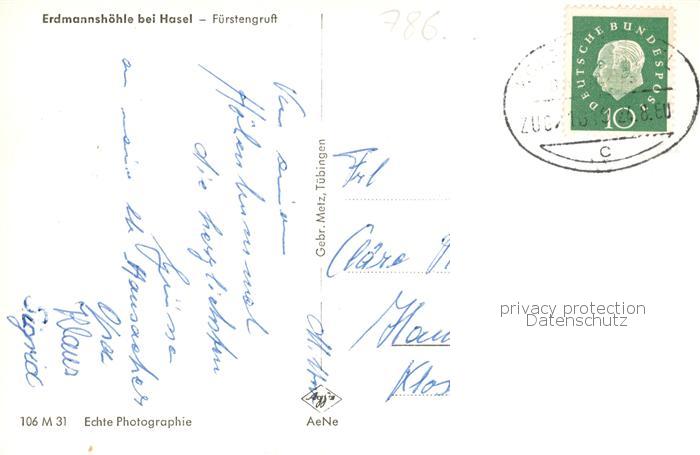 Erdmannshöhle bei Hasel – Fürstengruft
786
DEUTSCHE BUNDESPOST
10
ZUG 8.60
c
Von einem
Höhlenbummel
die herzlichsten
Grüße
an meine Hausacher
Opa
Klaus
Sigrid
Gebr. Metz, Tübingen
Frl
Cläre
Hau
Klos
privacy protection
Datenschutz
Agfa
106 M 31 Echte Photographie AeNe